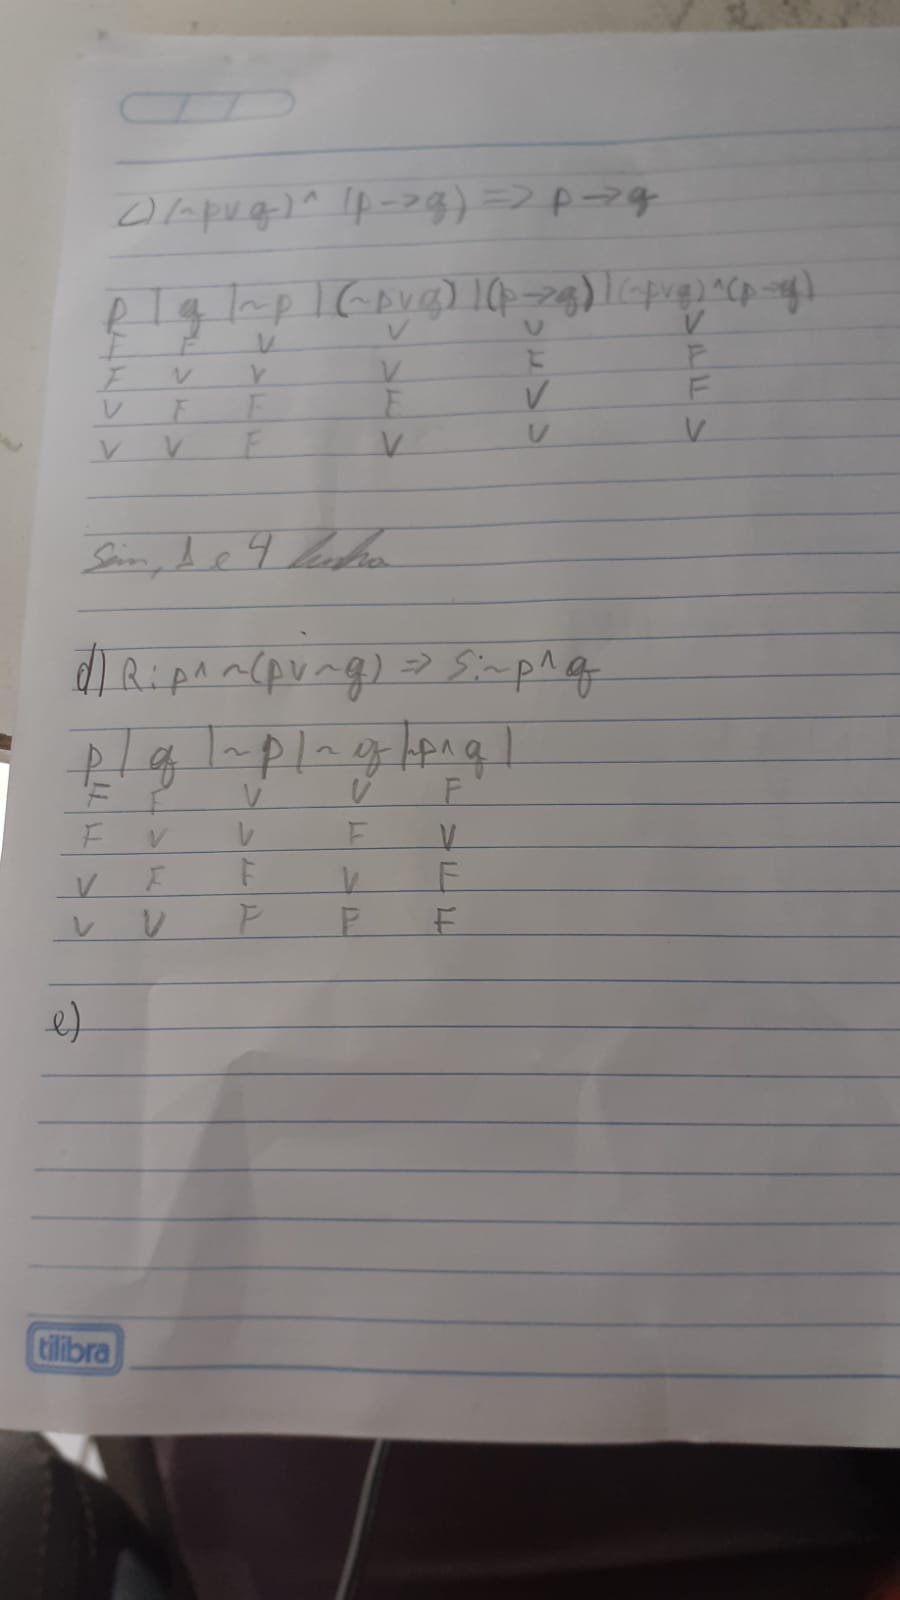 c) (~p∨q) ^ (p->q) => p->q
p | q | ~p | (~p∨q) | (p->q) | (~p∨q)^(p->q)
F F V V V V
F V V V F F
V F F F V F
V V F V V V
Sim, 1 e 4 linha
d) R: p ^ ~(p∨~q) => S: ~p^q
p | q | ~p | ~q | ~p^q |
F F V V F
F V V F V
V F F V F
V V F F F
e)
tilibra